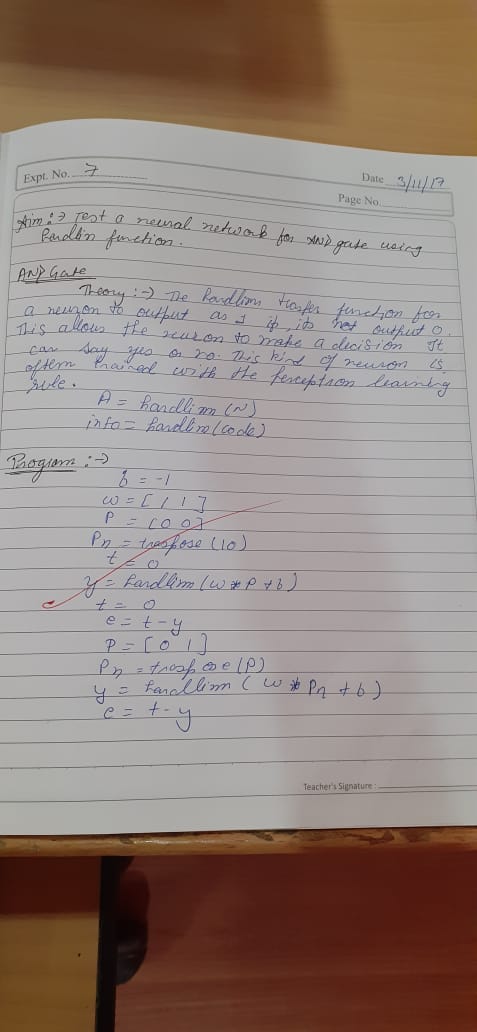 Expt. No. 7
Date 3/11/17
Page No.
Aim :→ Test a neural network for AND gate using
Hardlim function.
AND Gate
Theory :→ The hardlim trasfer function for
a neuron to output as 1 if, its not output 0.
This allows the neuron to make a decision It
can say yes or no. This kind of neuron is
oftem trained with the perceptron learning
rule.
A = hardlim (N)
info = hardlim (code)
Program :→
b = -1
w = [ 1 1 ]
P = [0 0]
Pn = traspose (10)
t = 0
y = hardlim (w * P + b)
t = 0
e = t - y
P = [ 0 1 ]
Pn = traspose (P)
y = hardlim ( w * Pn + b)
e = t - y
Teacher's Signature :